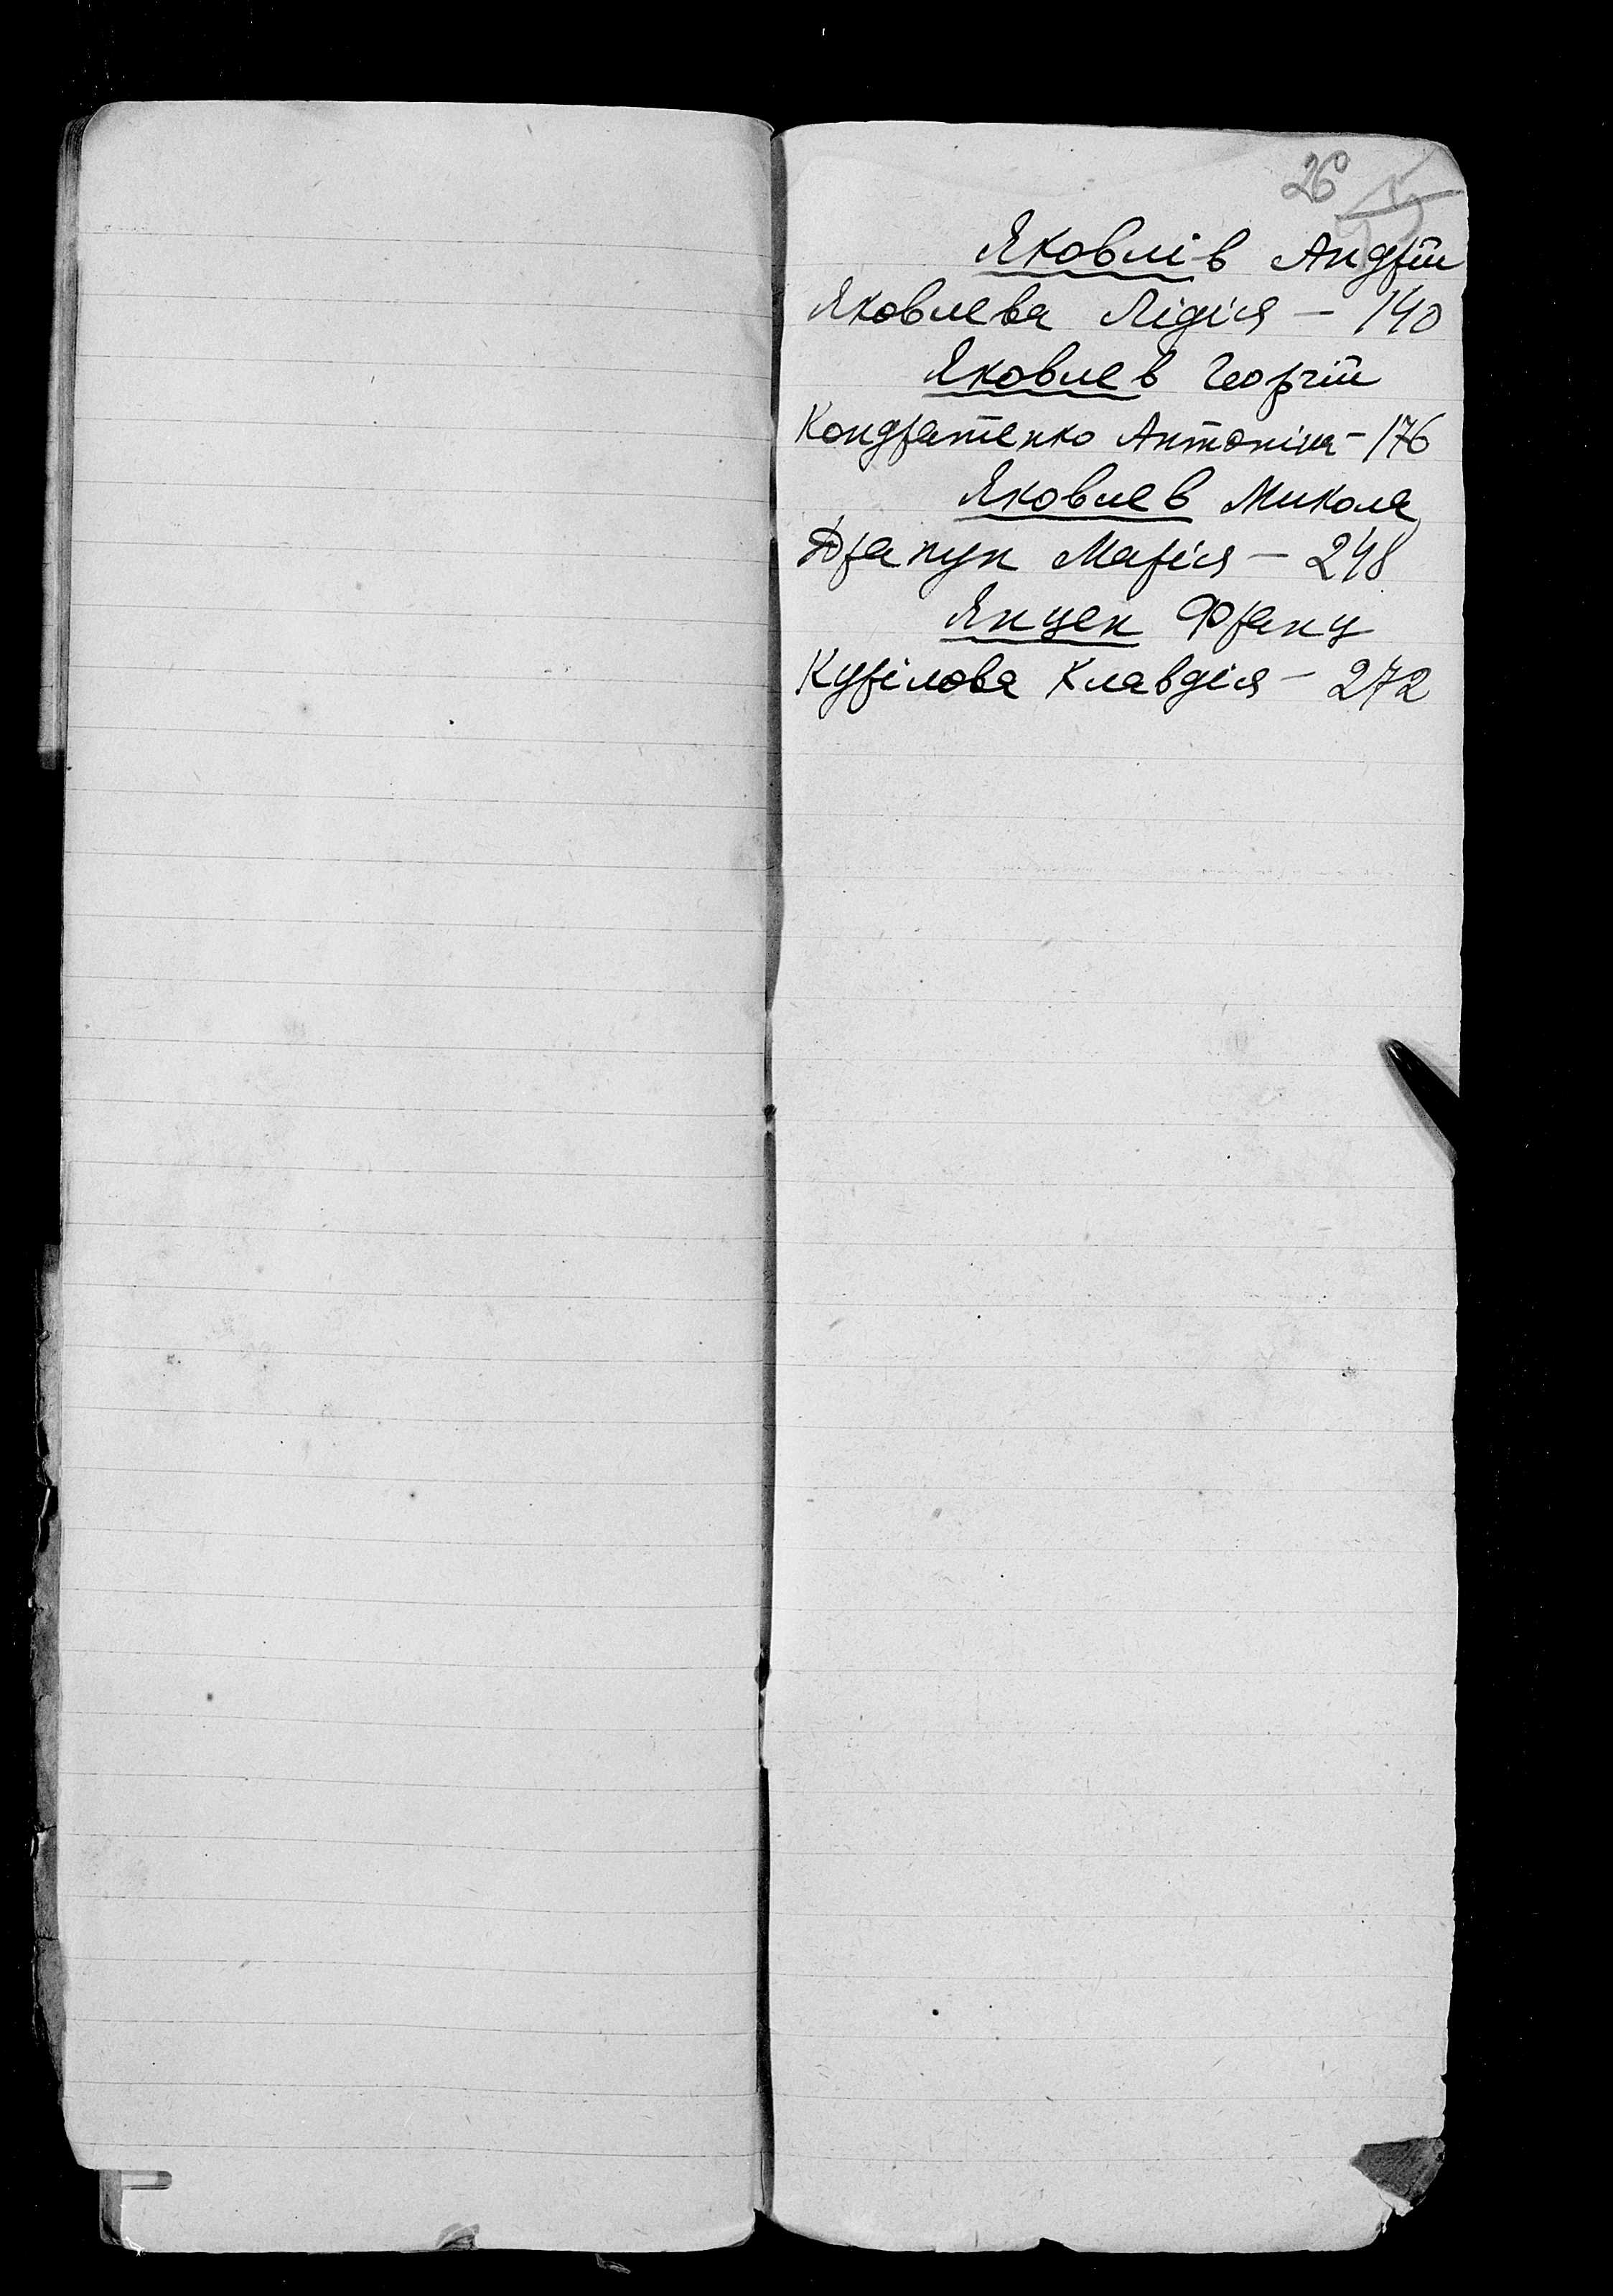 26
Яковлів Андрій
Яковлева Лідія – 140
Яковлев Георгій
Кондратенко Антоніна – 176
Яковлев Микола
Драпун Марія – 248
Янцен Франц
Курілова Клавдія – 272